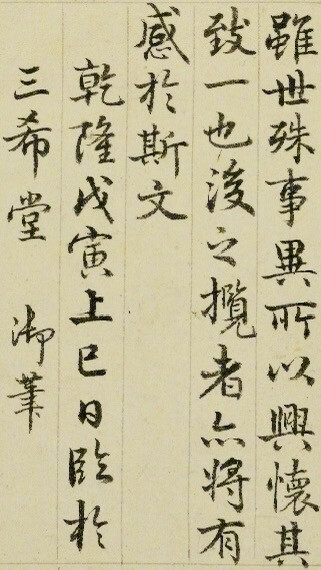 雖世殊事異所以興懷其
致一也後之攬者亦將有
感於斯文
乾隆戊寅上巳日臨於
三希堂 御筆